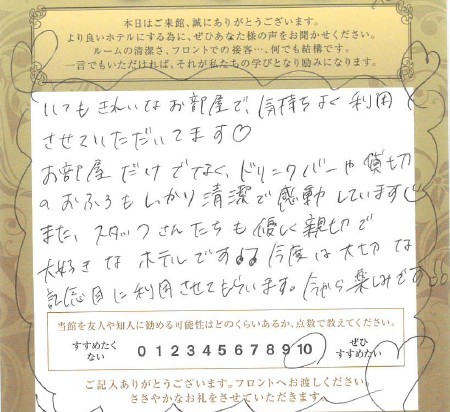 本日はご来館、誠にありがとうございます。
より良いホテルにする為に、ぜひあなた様の声をお聞かせください。
ルームの清潔さ、フロントでの接客…、何でも結構です。
一言でもいただければ、それが私たちの学びとなり励みになります。
いつもきれいなお部屋で、気持ちよく利用
させていただいてます♡
お部屋だけでなく、ドリンクバーや貸切
のおふろもしっかり清潔で感動しています
また、スタッフさんたちも優しく親切で
大好きなホテルです♪♪今度は大切な
記念日に利用させてもらいます。今から楽しみです♪♪
当館を友人や知人に勧める可能性はどのくらいあるか、点数で教えてください。
すすめたくない 0 1 2 3 4 5 6 7 8 9 10 ぜひすすめたい
ご記入ありがとうございます。フロントへお渡しください。
ささやかなお礼をさせていただきます。